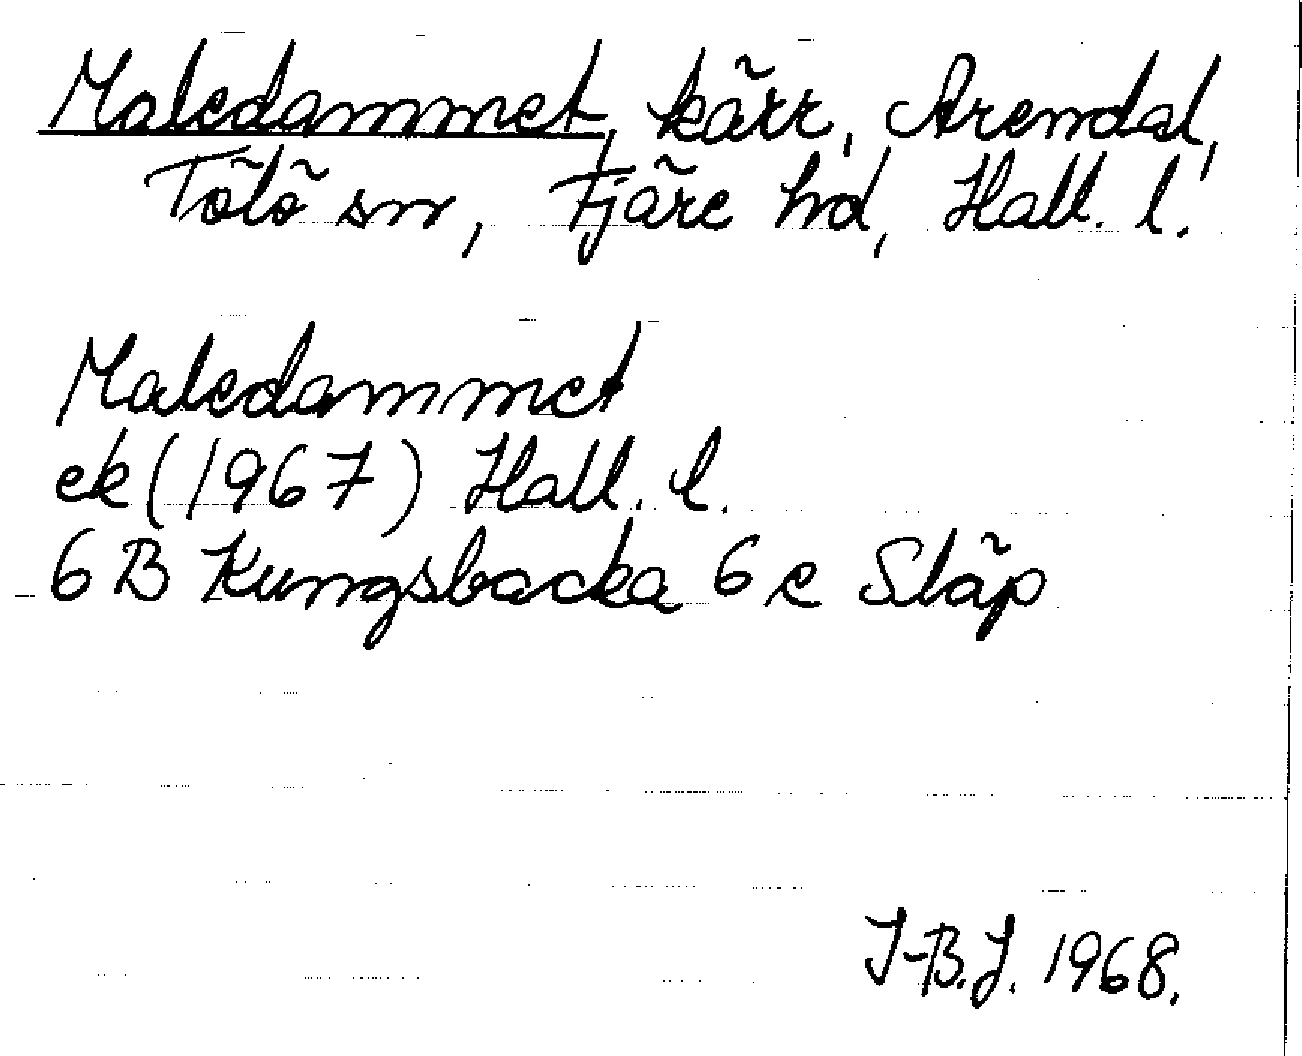 Maledammet, kärr, Arendal,
Tölö sn, Fjäre hd, Hall. l.
Maledammet
ek (1967) Hall. l.
6 B Kungsbacka 6 e Släp
I-B.J. 1968.